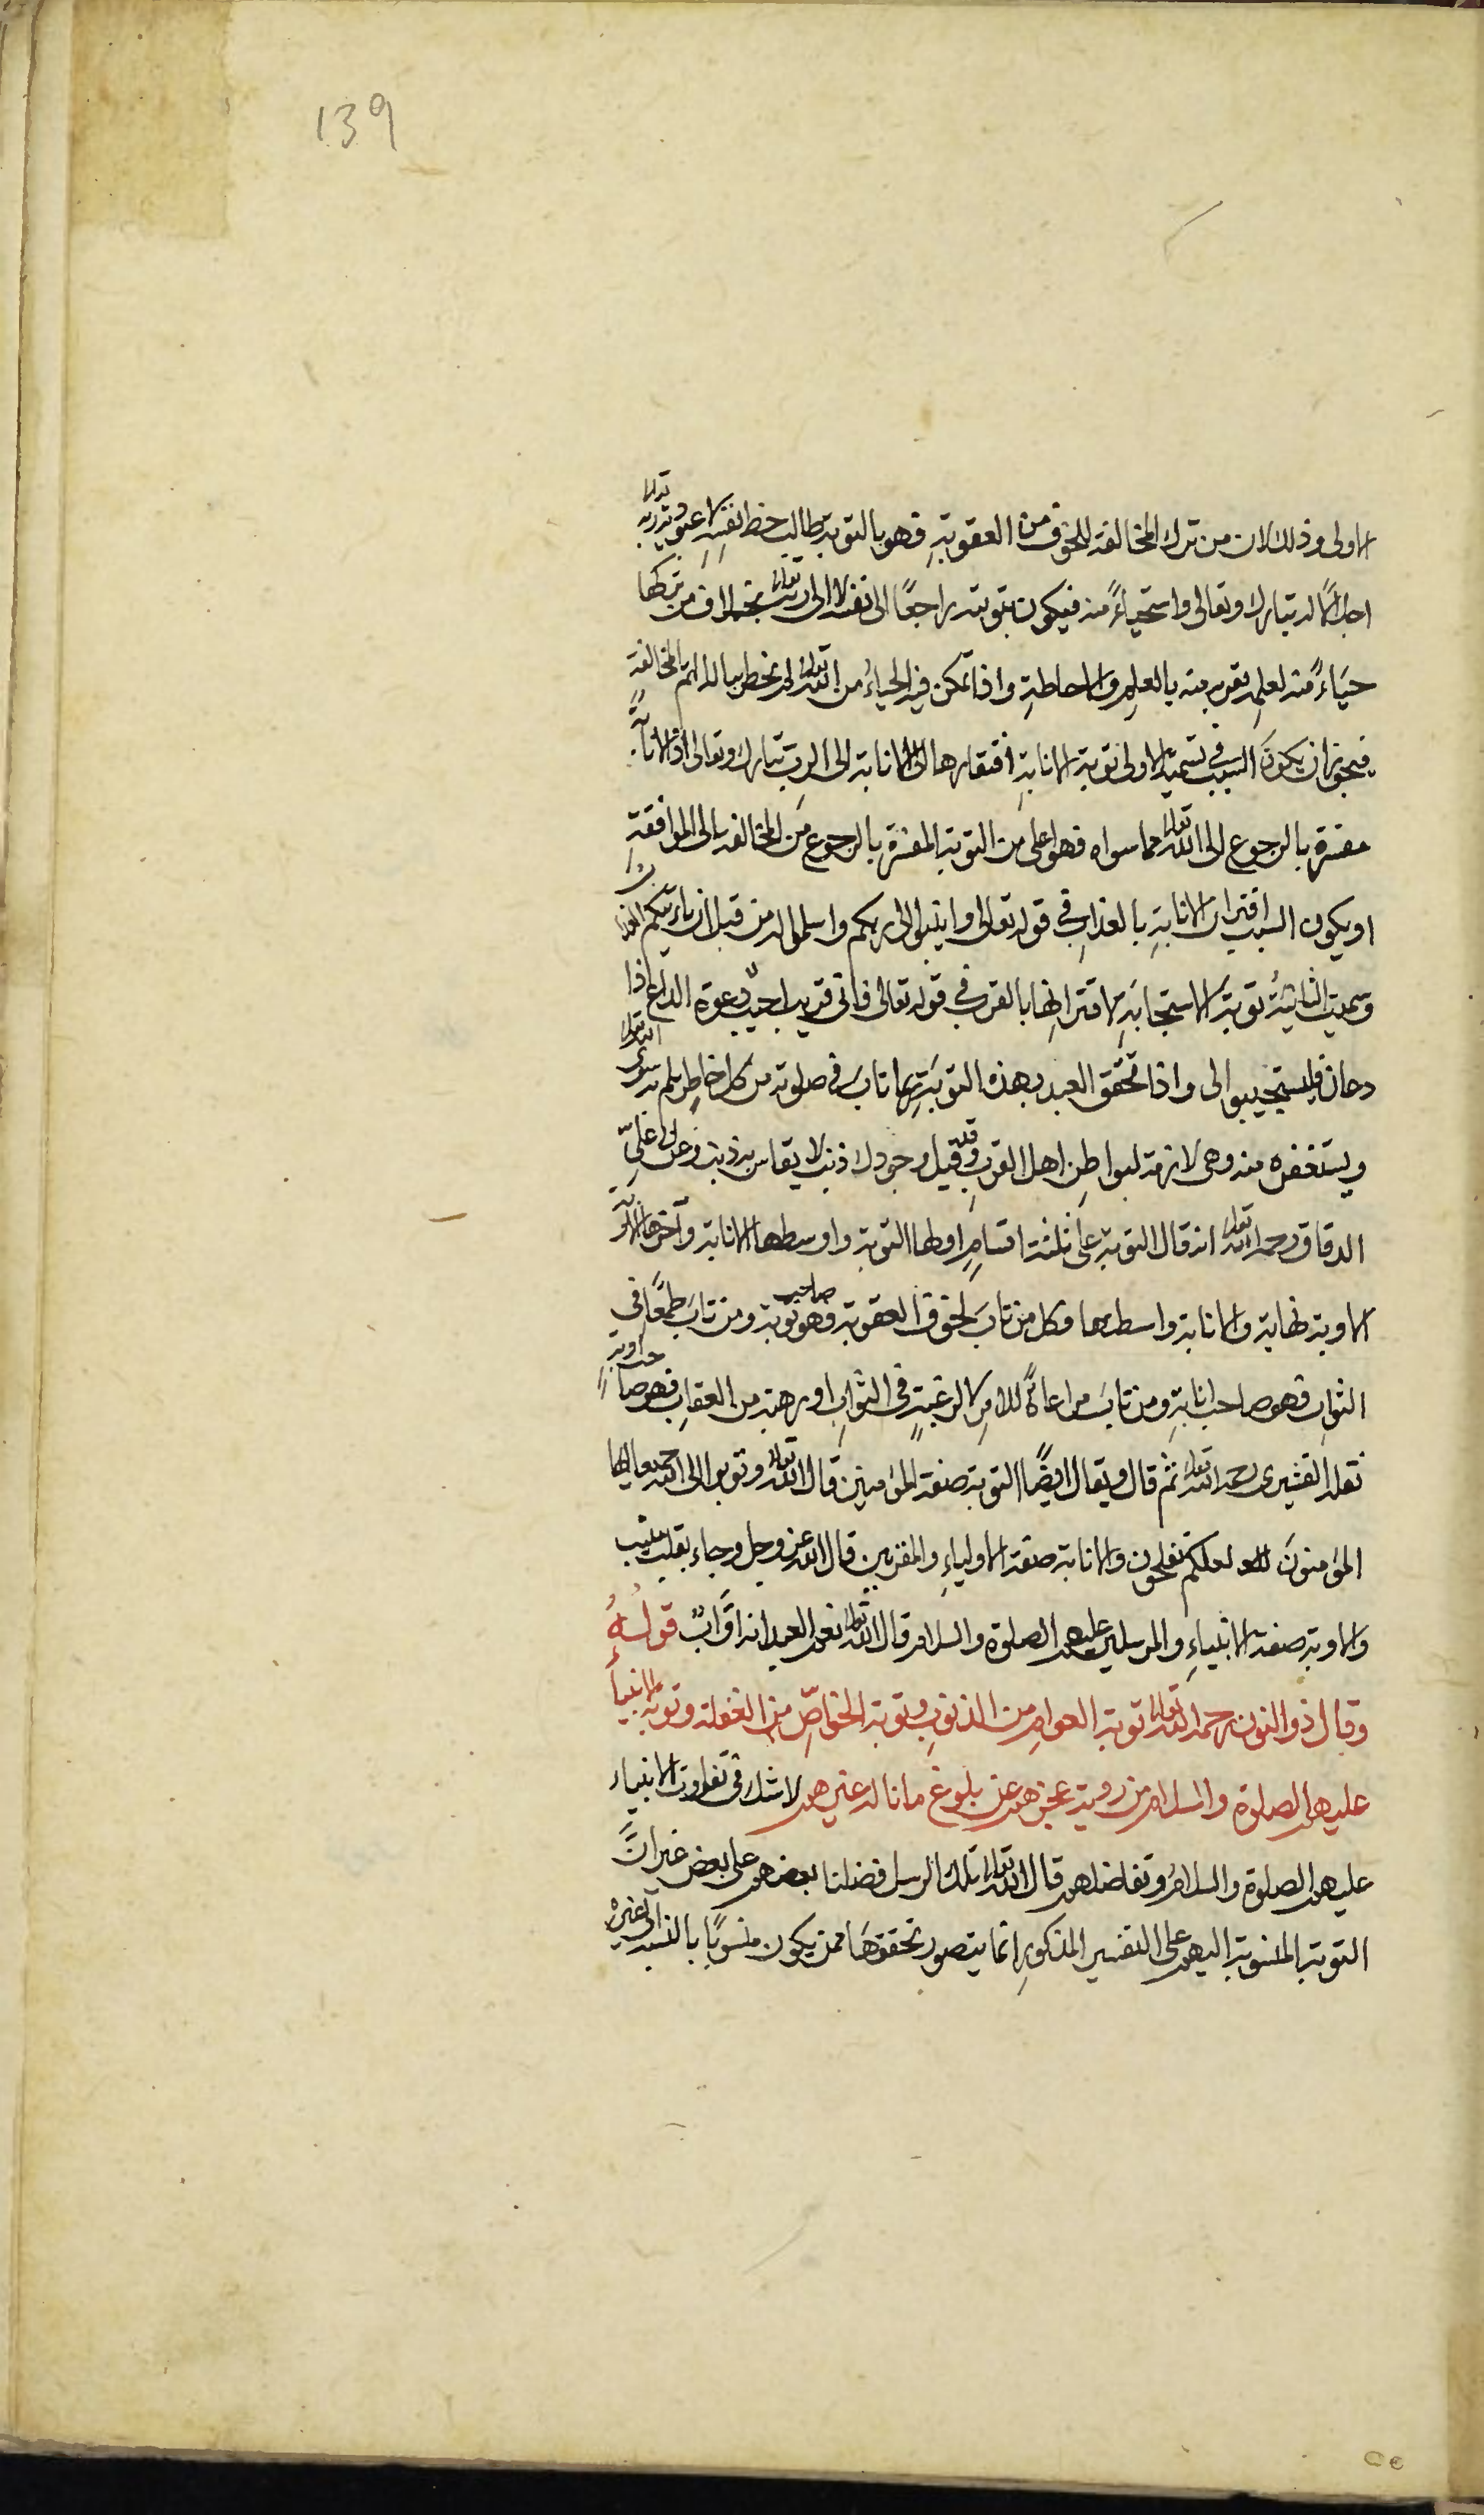 139
الاولى وذلك لان من ترك المخالفة للخوف من العقوبةِ فهو بالتوبة طالب حظ نفسِه لا عبودية ربه تعالى
اجلالًا له تبارك وتعالى واستحياءً منه فيكون بتوبته راجعًا الى نفسه لا الى ربه تعالى بخلاف من تركها
حيَاءً منه لعلمِه بقربه منه بالعلمِ والاحاطةِ واذا تمكن فيه الحياءُ من الله تعالى لم يخطر بباله الم المخالفة
فيجوز ان يكونَ السبب فى تسمية الاولى توبة الانابةِ افتقارها الى الانابة الى الرب تبارك وتعالى اذ الانابةُ
مفسرة بالرجوع الى الله تعالى مما سواه فهو اعلى من التوبة المفسرة بالرجوع من المخالفة الى الموافقةِ
او يكون السبب اقتران الانابةِ بالعذابِ فى قوله تعالى وانيبوا الى ربكم واسلموا له من قبل ان ياتيكم العذاب
وسميت الثانيةُ توبة الاستجابَةِ لاقترانها بالقرب فى قوله تعالى فانى قريب اجيب دعوة الداع اذا
دعان فليستجيبوا لى واذا تحقق العبد بهذه التوبَةِ ربما تاب فى صلوته من كل خاطرٍ يلم به سوى الله تعالى
ويستغفره منه وهى لازمة لبواطنِ اهل القربِ وقد قيل وجودك ذنب لا يقاس به ذنب وعن ابى علىّ
الدقاق رحمه الله تعالى انه قال التوبة على ثلثة اقسامٍ اولها التوبة واوسطها الانابة وآخرها الاوبة
الاوبة نهاية والانابة واسطها وكل من تابَ لخوف العقوبة وهو صاحب توبة ومن تابَ طمعًا فى
الثوابِ فهو صاحب انابةٍ ومن تابَ مراعاةً للامرِ لا لرغبةٍ فى الثوابِ او رهبة من العقابِ فهو صاحب اوبةٍ
نقله القشيرى رحمه الله تعالى ثم قال ويقال ايضًا التوبة صفة المؤمنين قال الله تعالى وتوبوا الى الله جميعا ايها
المؤمنونَ لعلكم تفلحون والانابة صفة الاولياءِ والمقربين قال الله عز وجل وجاء بقلب منيب
والاوبة صفة الانبياءِ والمرسلين عليهم الصلوة والسلام قال الله تعالى نعم العبد انه اوَّابٌ قولُهُ
وقال ذو النون رحمه الله تعالى توبة العوام من الذنوبِ وتوبة الخواصِّ من الغفلة وتوبة الانبياءِ
عليهم الصلوة والسلام من رؤية عجزهم عن بلوغ ما ناله غيرهم لا شك فى تفاوت الانبياء
عليهم الصلوة والسلامُ وتفاضلهم قال الله تعالى تلك الرسل فضلنا بعضهم على بعض غير انَّ
التوبة المنسوبة اليهم على التفسير المذكورِ انما يتصور تحققهَا ممن يكون منسوبًا بالنسبة الى غيره